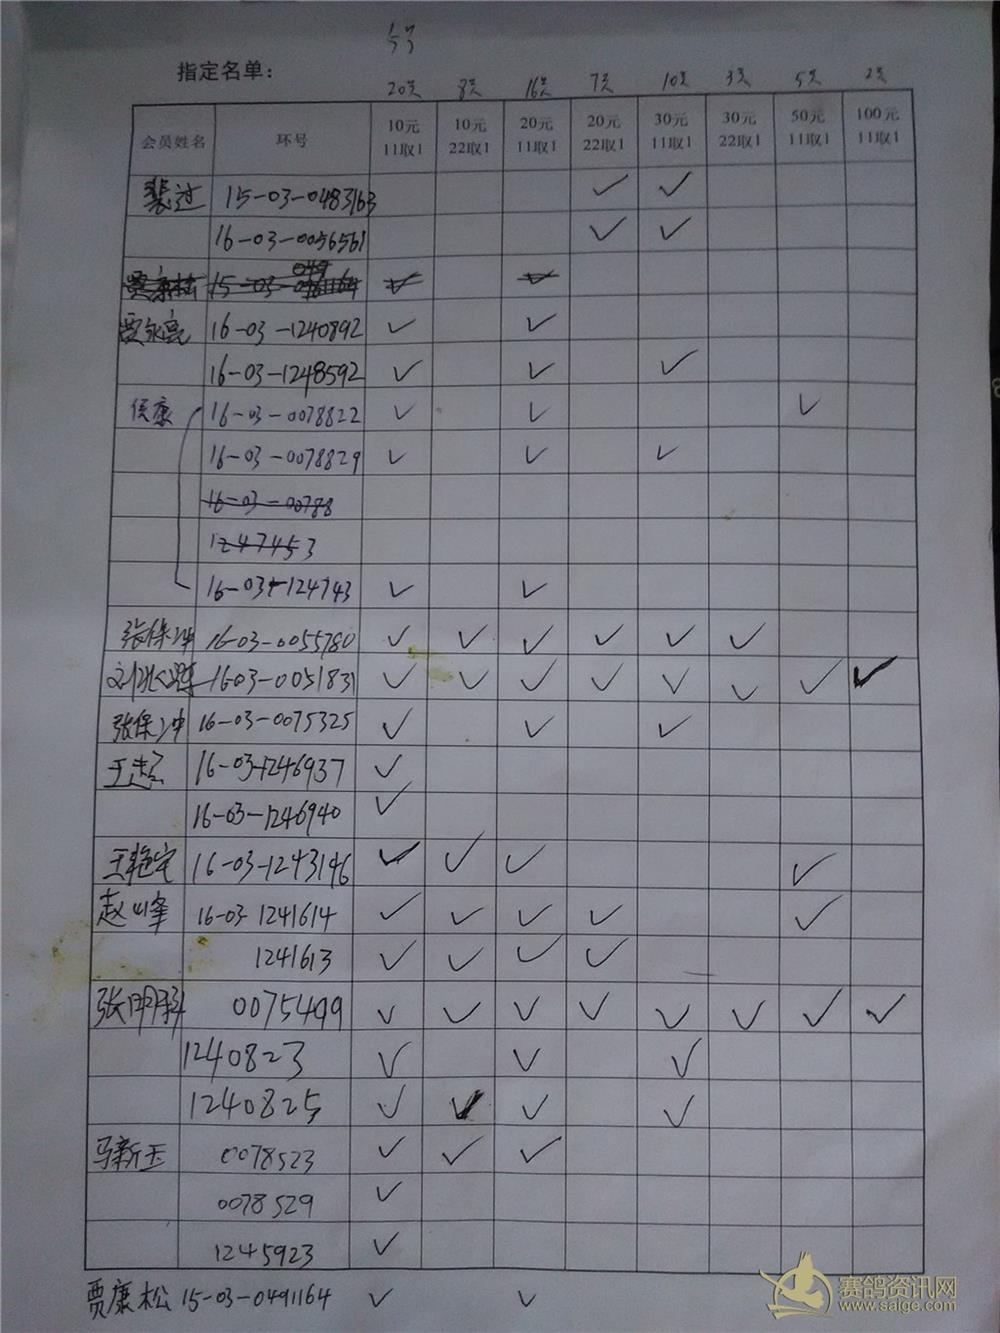 指定名单:
20羽 8羽 16羽 7羽 10羽 3羽 5羽 2羽
会员姓名 环号 10元 11取1 10元 22取1 20元 11取1 20元 22取1 30元 11取1 30元 22取1 50元 11取1 100元 11取1
裴过 15-03-0483163 ✓ ✓
16-03-0056561 ✓ ✓
贾康松 15-03- ✓ ✓
贾永亮 16-03-1240892 ✓ ✓
16-03-1248592 ✓ ✓ ✓
侯康 16-03-0078822 ✓ ✓ ✓
16-03-0078829 ✓ ✓ ✓
16-03-00788
1247453
16-03-124743 ✓ ✓
张保冲 16-03-0055780 ✓ ✓ ✓ ✓ ✓ ✓
16-03-0051831 ✓ ✓ ✓ ✓ ✓ ✓ ✓ ✓
张保冲 16-03-0075325 ✓ ✓ ✓
王超 16-03-1246937 ✓
16-03-1246940 ✓
王艳宾 16-03-1243146 ✓ ✓ ✓ ✓
赵峰 16-03-1241614 ✓ ✓ ✓ ✓ ✓
1241613 ✓ ✓ ✓ ✓
张明 0075499 ✓ ✓ ✓ ✓ ✓ ✓ ✓ ✓
1240823 ✓ ✓ ✓
1240825 ✓ ✓ ✓ ✓
马新玉 0078523 ✓ ✓ ✓
0078529 ✓
1245923 ✓
贾康松 15-03-0491164 ✓ ✓
赛鸽资讯网
www.saige.com